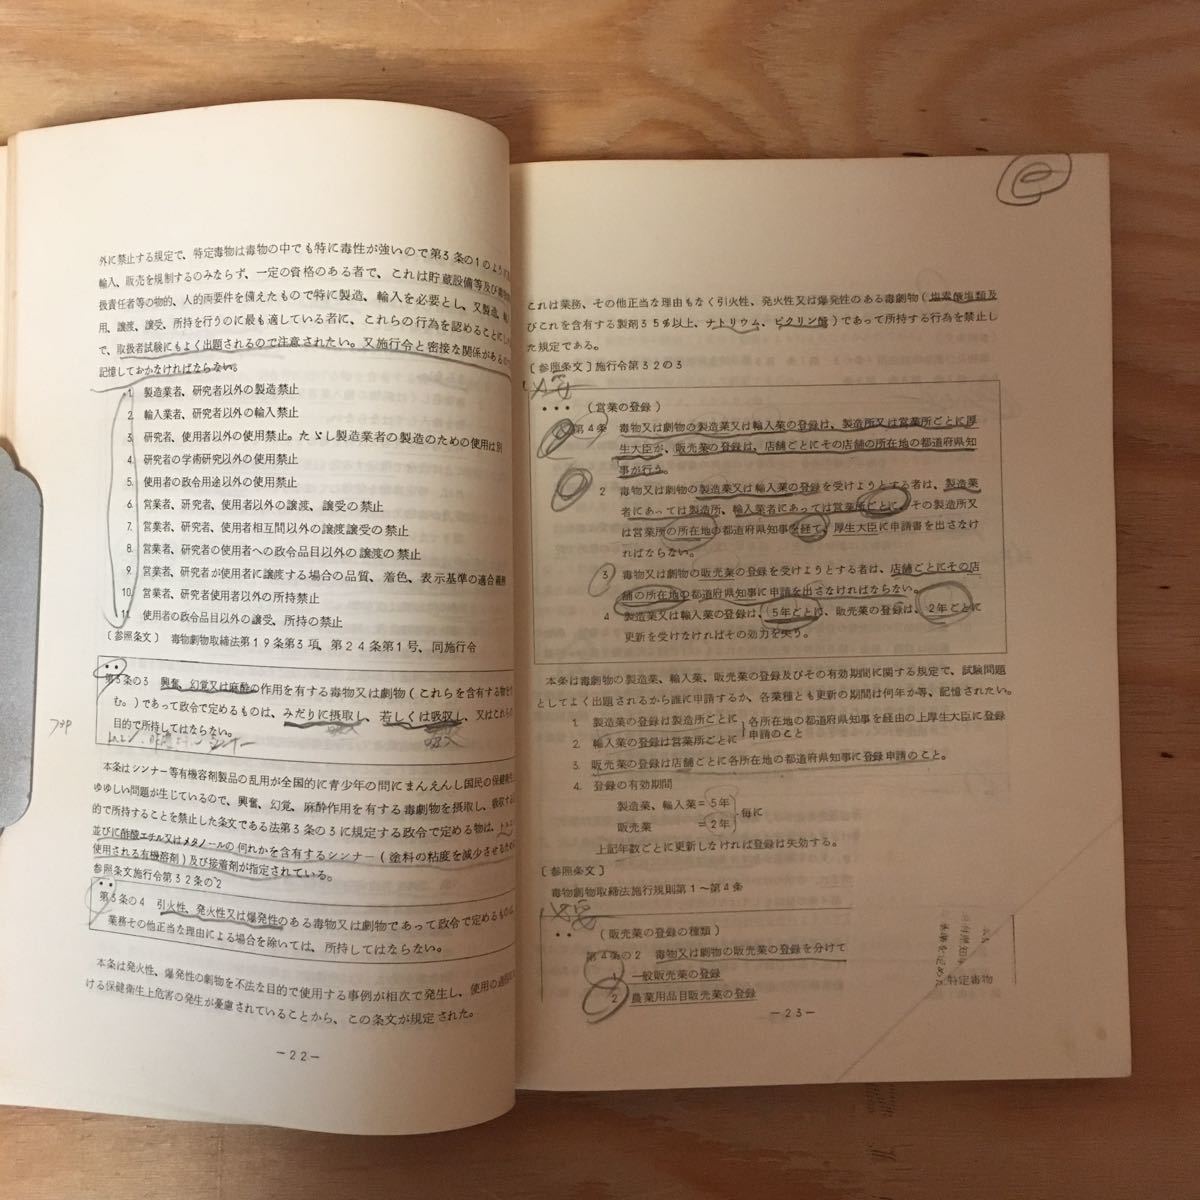 外に禁止する規定で、特定毒物は毒物の中でも特に毒性が強いので第3条の1のよう
輸入、販売を規制するのみならず、一定の資格のある者で、これは貯蔵設備等及び
扱責任者等の物的、人的両要件を備えたもので特に製造、輸入を必要とし、又製造、
用、譲渡、譲受、所持を行うのに最も適している者に、これらの行為を認めることに
で、取扱者試験にもよく出題されるので注意されたい。又施行令と密接な関係があるので
記憶しておかなければならない。
1. 製造業者、研究者以外の製造禁止
2. 輸入業者、研究者以外の輸入禁止
3. 研究者、使用者以外の使用禁止。たゞし製造業者の製造のための使用は別
4. 研究者の学術研究以外の使用禁止
5. 使用者の政令用途以外の使用禁止
6. 営業者、研究者、使用者以外の譲渡、譲受の禁止
7. 営業者、研究者、使用者相互間以外の譲渡譲受の禁止
8. 営業者、研究者の使用者への政令品目以外の譲渡の禁止
9. 営業者、研究者が使用者に譲渡する場合の品質、着色、表示基準の適合義務
10. 営業者、研究者使用者以外の所持禁止
11. 使用者の政令品目以外の譲受、所持の禁止
〔参照条文〕 毒物劇物取締法第19条第3項、第24条第1号、同施行令
••
第3条の3 興奮、幻覚又は麻酔の作用を有する毒物又は劇物(これらを含有する物を
む。)であって政令で定めるものは、みだりに摂取し、若しくは吸収し、又はこれらの
目的で所持してはならない。
シンナー
本条はシンナー等有機容剤製品の乱用が全国的に青少年の間にまんえんし国民の保健衛生
ゆゆしい問題が生じているので、興奮、幻覚、麻酔作用を有する毒劇物を摂取し、吸収する
的で所持することを禁止した条文である法第3条の3に規定する政令で定める物は、
並びに酢酸エチル又はメタノールの何れかを含有するシンナー(塗料の粘度を減少させるために
使用される有機溶剤)及び接着剤が指定されている。
参照条文施行令第32条の2
••
第3条の4 引火性、発火性又は爆発性のある毒物又は劇物であって政令で定めるものは、
業務その他正当な理由による場合を除いては、所持してはならない。
本条は発火性、爆発性の劇物を不法な目的で使用する事例が相次で発生し、使用の過程に
ける保健衛生上危害の発生が憂慮されていることから、この条文が規定された。
－22－
これは業務、その他正当な理由もなく引火性、発火性又は爆発性のある毒劇物(塩素酸塩類及
びこれを含有する製剤35%以上、ナトリウム、ピクリン酸)であって所持する行為を禁止し
た規定である。
〔参照条文〕施行令第32の3
••• (営業の登録)
第4条 毒物又は劇物の製造業又は輸入業の登録は、製造所又は営業所ごとに厚
生大臣が、販売業の登録は、店舗ごとにその店舗の所在地の都道府県知
事が行う。
2 毒物又は劇物の製造業又は輸入業の登録を受けようとする者は、製造業
者にあっては製造所、輸入業者にあっては営業所ごとに、その製造所又
は営業所の所在地の都道府県知事を経て、厚生大臣に申請書を出さなけ
ればならない。
3 毒物又は劇物の販売業の登録を受けようとする者は、店舗ごとにその店
舗の所在地の都道府県知事に申請を出さなければならない。
4 製造業又は輸入業の登録は、5年ごとに、販売業の登録は、2年ごとに
更新を受けなければその効力を失う。
本条は毒劇物の製造業、輸入業、販売業の登録及びその有効期間に関する規定で、試験問題
としてよく出題されるから誰に申請するか、各業種とも更新の期間は何年か等、記憶されたい。
1. 製造業の登録は製造所ごとに 各所在地の都道府県知事を経由の上厚生大臣に登録
2. 輸入業の登録は営業所ごとに 申請のこと
3. 販売業の登録は店舗ごとに各所在地の都道府県知事に登録申請のこと。
4. 登録の有効期間
製造業、輸入業＝5年 毎に
販売業 ＝2年
上記年数ごとに更新しなければ登録は失効する。
〔参照条文〕
毒物劇物取締法施行規則第1～第4条
•• (販売業の登録の種類)
第4条の2 毒物又は劇物の販売業の登録を分けて
1 一般販売業の登録
2 農業用品目販売業の登録
特定毒物
－23－